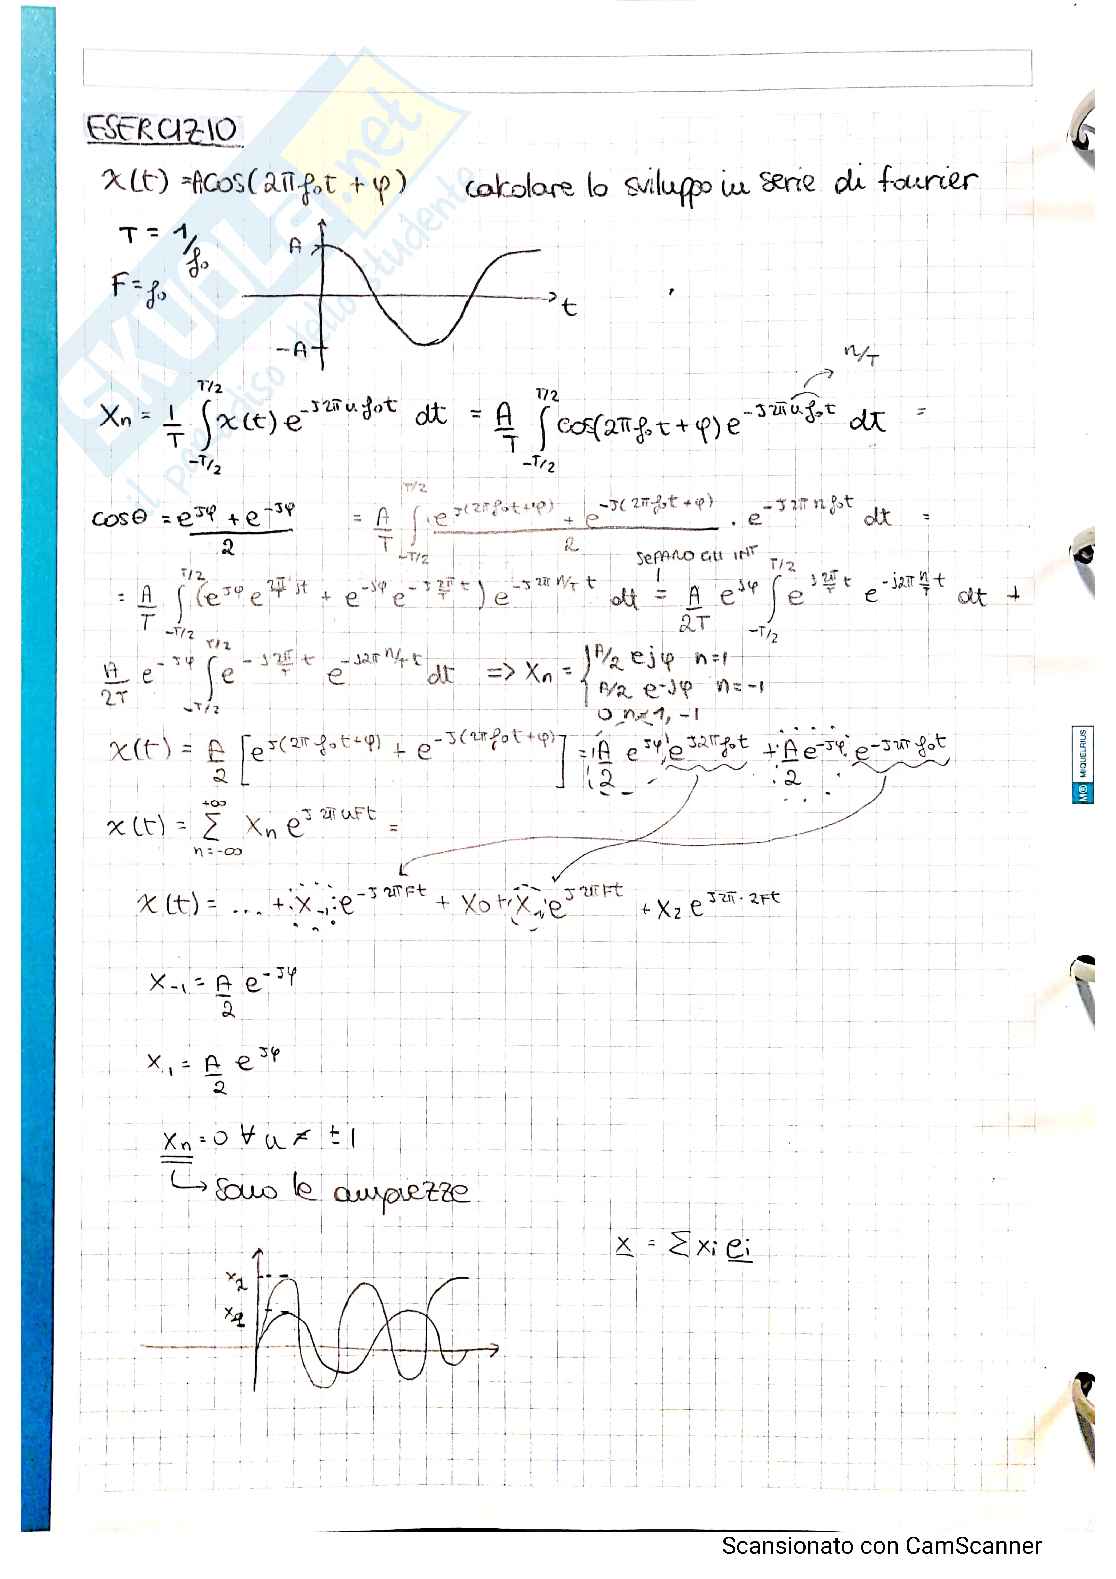 ESERCIZIO
x(t) = A cos(2π f₀t + φ) calcolare lo sviluppo in serie di fourier
T = 1/f₀
F = f₀
A
-A
t
n/T
Xn = 1/T ∫_{-T/2}^{T/2} x(t) e^{-J2πn f₀t} dt = A/T ∫_{-T/2}^{T/2} cos(2πf₀t + φ) e^{-J2πn f₀t} dt =
cosθ = (e^{Jφ} + e^{-Jφ})/2 = A/T ∫_{-T/2}^{T/2} (e^{J(2πf₀t+φ)} + e^{-J(2πf₀t+φ)})/2 · e^{-J2πn f₀t} dt =
SEPARO GLI INT
= A/T ∫_{-T/2}^{T/2} (e^{Jφ} e^{J2π/T t} + e^{-Jφ} e^{-J2π/T t}) e^{-J2πn/T t} dt = A/2T e^{Jφ} ∫_{-T/2}^{T/2} e^{J2π/T t} e^{-J2πn/T t} dt +
A/2T e^{-Jφ} ∫_{-T/2}^{T/2} e^{-J2π/T t} e^{-J2πn/T t} dt => Xn = { A/2 e^{jφ} n=1
A/2 e^{-Jφ} n=-1
0 n≠1, -1
x(t) = A/2 [e^{J(2πf₀t+φ)} + e^{-J(2πf₀t+φ)}] = A/2 e^{Jφ} e^{J2πf₀t} + A/2 e^{-Jφ} e^{-J2πf₀t}
x(t) = Σ_{n=-∞}^{+∞} Xn e^{J2πnFt} =
x(t) = ... + X₋₁ e^{-J2πFt} + X₀ + X₁ e^{J2πFt} + X₂ e^{J2π·2Ft}
X₋₁ = A/2 e^{-Jφ}
X₁ = A/2 e^{Jφ}
Xn = 0 ∀ n ≠ ±1
↳ sono le ampiezze
x = Σ xi ei
x₂
x₁
MIQUELRIUS
SKUOLA.net
il paradiso dello studente
Scansionato con CamScanner